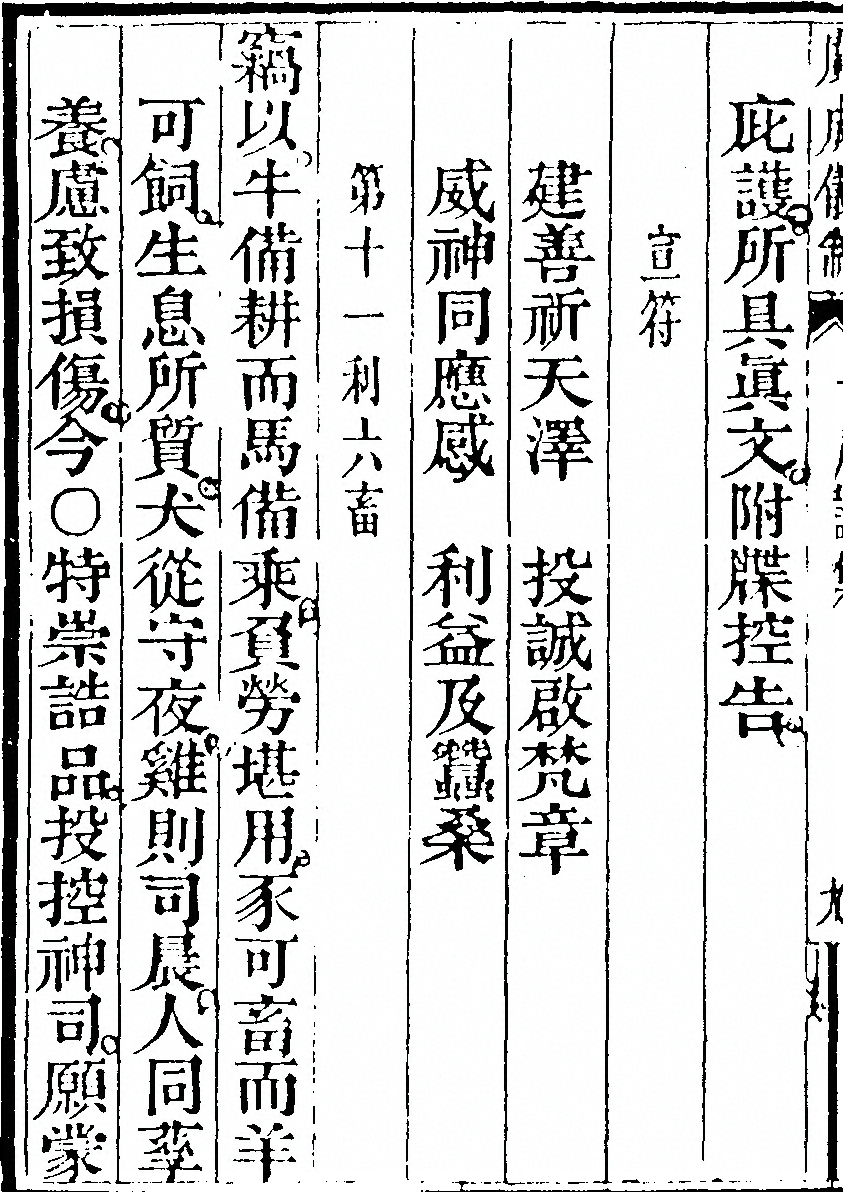 庇護所具眞文附牒控告
宣符
建善祈天澤　投誠啟梵章
威神同應感　利益及蠶桑
第十一利六畜
竊以牛備耕而馬備乘負勞堪用豕可畜而羊
可飼生息所質犬從守夜雞則司晨人同孳
養慮致損傷今○特崇誥品投控神司願蒙